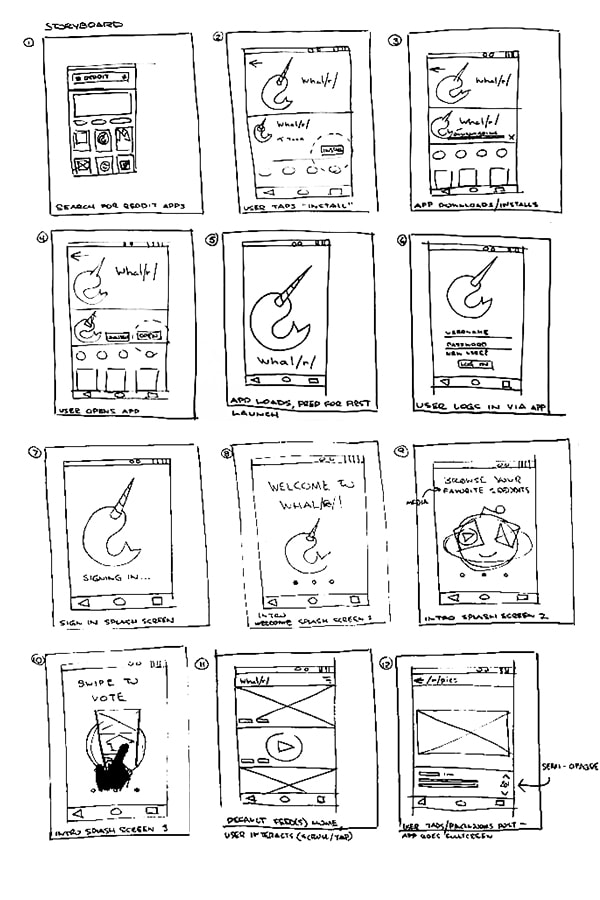 STORYBOARD
1
REDDIT
SEARCH FOR REDDIT APPS
2
Whal/r/
Whal/r/
INSTALL
USER TAPS "INSTALL"
3
Whal/r/
Whal/r/
X
APP DOWNLOADS/INSTALLS
4
Whal/r/
OPEN
USER OPENS APP
5
Whal/r/
APP LOADS, PREP FOR FIRST
LAUNCH
6
USERNAME
PASSWORD
NEW USER?
LOG IN
USER LOGS IN VIA APP
7
SIGNING IN...
SIGN IN SPLASH SCREEN
8
WELCOME TO
WHAL/R/!
INTRO
WELCOME SPLASH SCREEN 1
9
BROWSE YOUR
FAVORITE SUBREDDITS
MEDIA
INTRO SPLASH SCREEN 2
10
SWIPE TO
VOTE
INTRO SPLASH SCREEN 3
11
whal/r/
DEFAULT FEED(S) HOME,
USER INTERACTS (SCROLL/TAP)
12
/r/pics
SEMI-OPAQUE
USER TAPS/ POST -
APP GOES FULLSCREEN